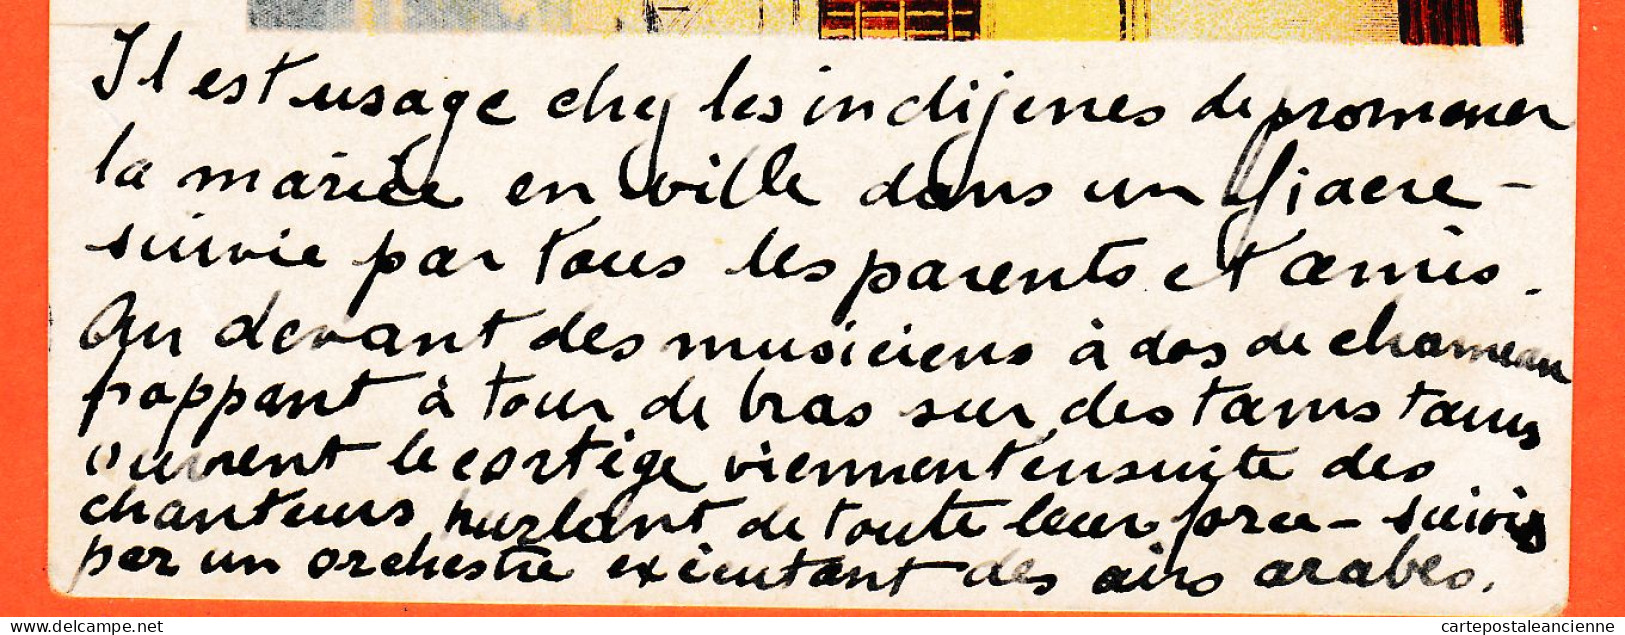 Il est usage chez les indijenes de promener
la mariée en ville dans un fiacre -
suivie par tous les parents et amis.
Au devant des musiciens à dos de chameau
frappant à tour de bras sur des tams tams
ouvrent le cortège viennent ensuite des
chanteurs hurlant de toute leur force - suivis
par un orchestre exécutant des airs arabes.
www.delcampe.net
cartepostaleancienne